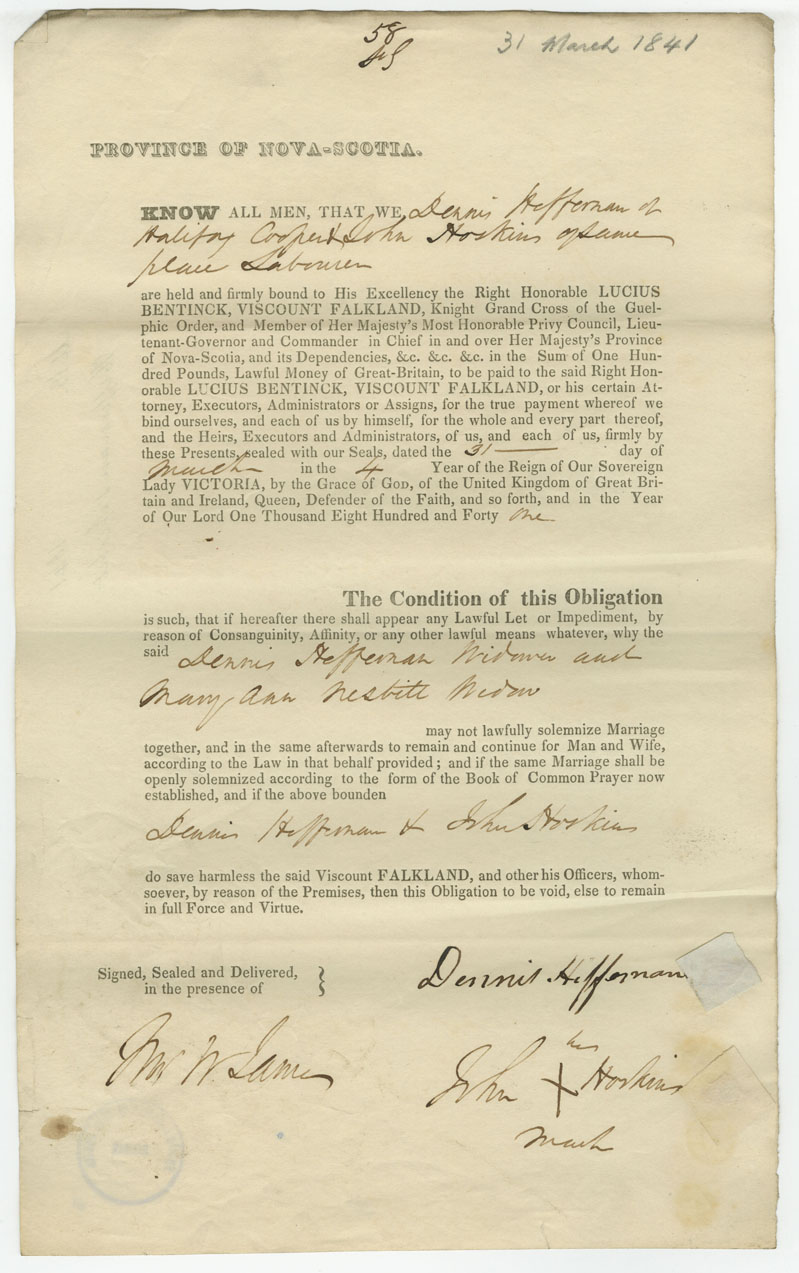 58
31 March 1841
PROVINCE OF NOVA-SCOTIA.
KNOW ALL MEN, THAT WE, Dennis Heffernan of
Halifax Cooper & John Hoskins of same
place Labourer
are held and firmly bound to His Excellency the Right Honorable LUCIUS
BENTINCK, VISCOUNT FALKLAND, Knight Grand Cross of the Guel-
phic Order, and Member of Her Majesty's Most Honorable Privy Council, Lieu-
tenant-Governor and Commander in Chief in and over Her Majesty's Province
of Nova-Scotia, and its Dependencies, &c. &c. &c. in the Sum of One Hun-
dred Pounds, Lawful Money of Great-Britain, to be paid to the said Right Hon-
orable LUCIUS BENTINCK, VISCOUNT FALKLAND, or his certain At-
torney, Executors, Administrators or Assigns, for the true payment whereof we
bind ourselves, and each of us by himself, for the whole and every part thereof,
and the Heirs, Executors and Administrators, of us, and each of us, firmly by
these Presents, sealed with our Seals, dated the 31 day of
March in the 4 Year of the Reign of Our Sovereign
Lady VICTORIA, by the Grace of GOD, of the United Kingdom of Great Bri-
tain and Ireland, Queen, Defender of the Faith, and so forth, and in the Year
of Our Lord One Thousand Eight Hundred and Forty one
The Condition of this Obligation
is such, that if hereafter there shall appear any Lawful Let or Impediment, by
reason of Consanguinity, Affinity, or any other lawful means whatever, why the
said Dennis Heffernan Widower and
Mary Ann Nesbitt Widow
may not lawfully solemnize Marriage
together, and in the same afterwards to remain and continue for Man and Wife,
according to the Law in that behalf provided; and if the same Marriage shall be
openly solemnized according to the form of the Book of Common Prayer now
established, and if the above bounden
Dennis Heffernan & John Hoskins
do save harmless the said Viscount FALKLAND, and other his Officers, whom-
soever, by reason of the Premises, then this Obligation to be void, else to remain
in full Force and Virtue.
Signed, Sealed and Delivered,
in the presence of
Dennis Heffernan
W James
his
John X Hoskins
Mark